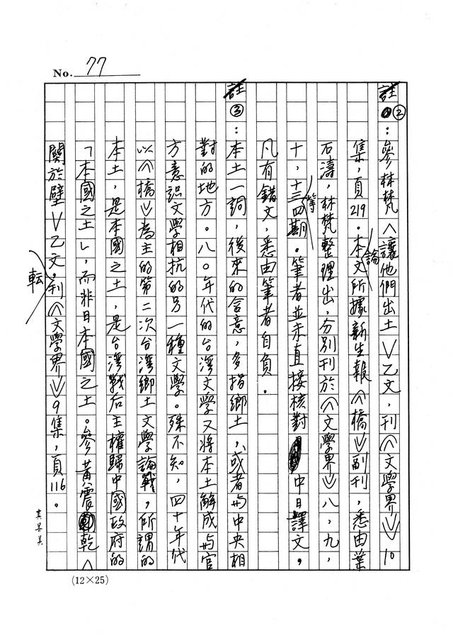 No. 77
註②:參林梵〈讓他們出土〉乙文,刊《文學界》10
集,頁219。本論文所據新生報《橋》副刊,悉由葉
石濤,林梵整理出,分別刊於《文學界》八,九,
十,十三,四等期。筆者並未直接核對中日譯文,
凡有錯文,悉由筆者自負。
註③:本土一詞,後來的含意,多指鄉土,或者与中央相
對的地方。八〇年代的台灣文學又將本土解成与官
方意識文學相抗的另一種文學。殊不知,四十年代
以《橋》為主的第二次台灣鄉土文學論戰,所謂的
本土,是本國之土,是台灣戰后主權歸中國政府的
「本國之土」,而非日本國之土。參黃震乾〈
關於壁〉乙文,転刊《文學界》9集,頁116。
(12×25)